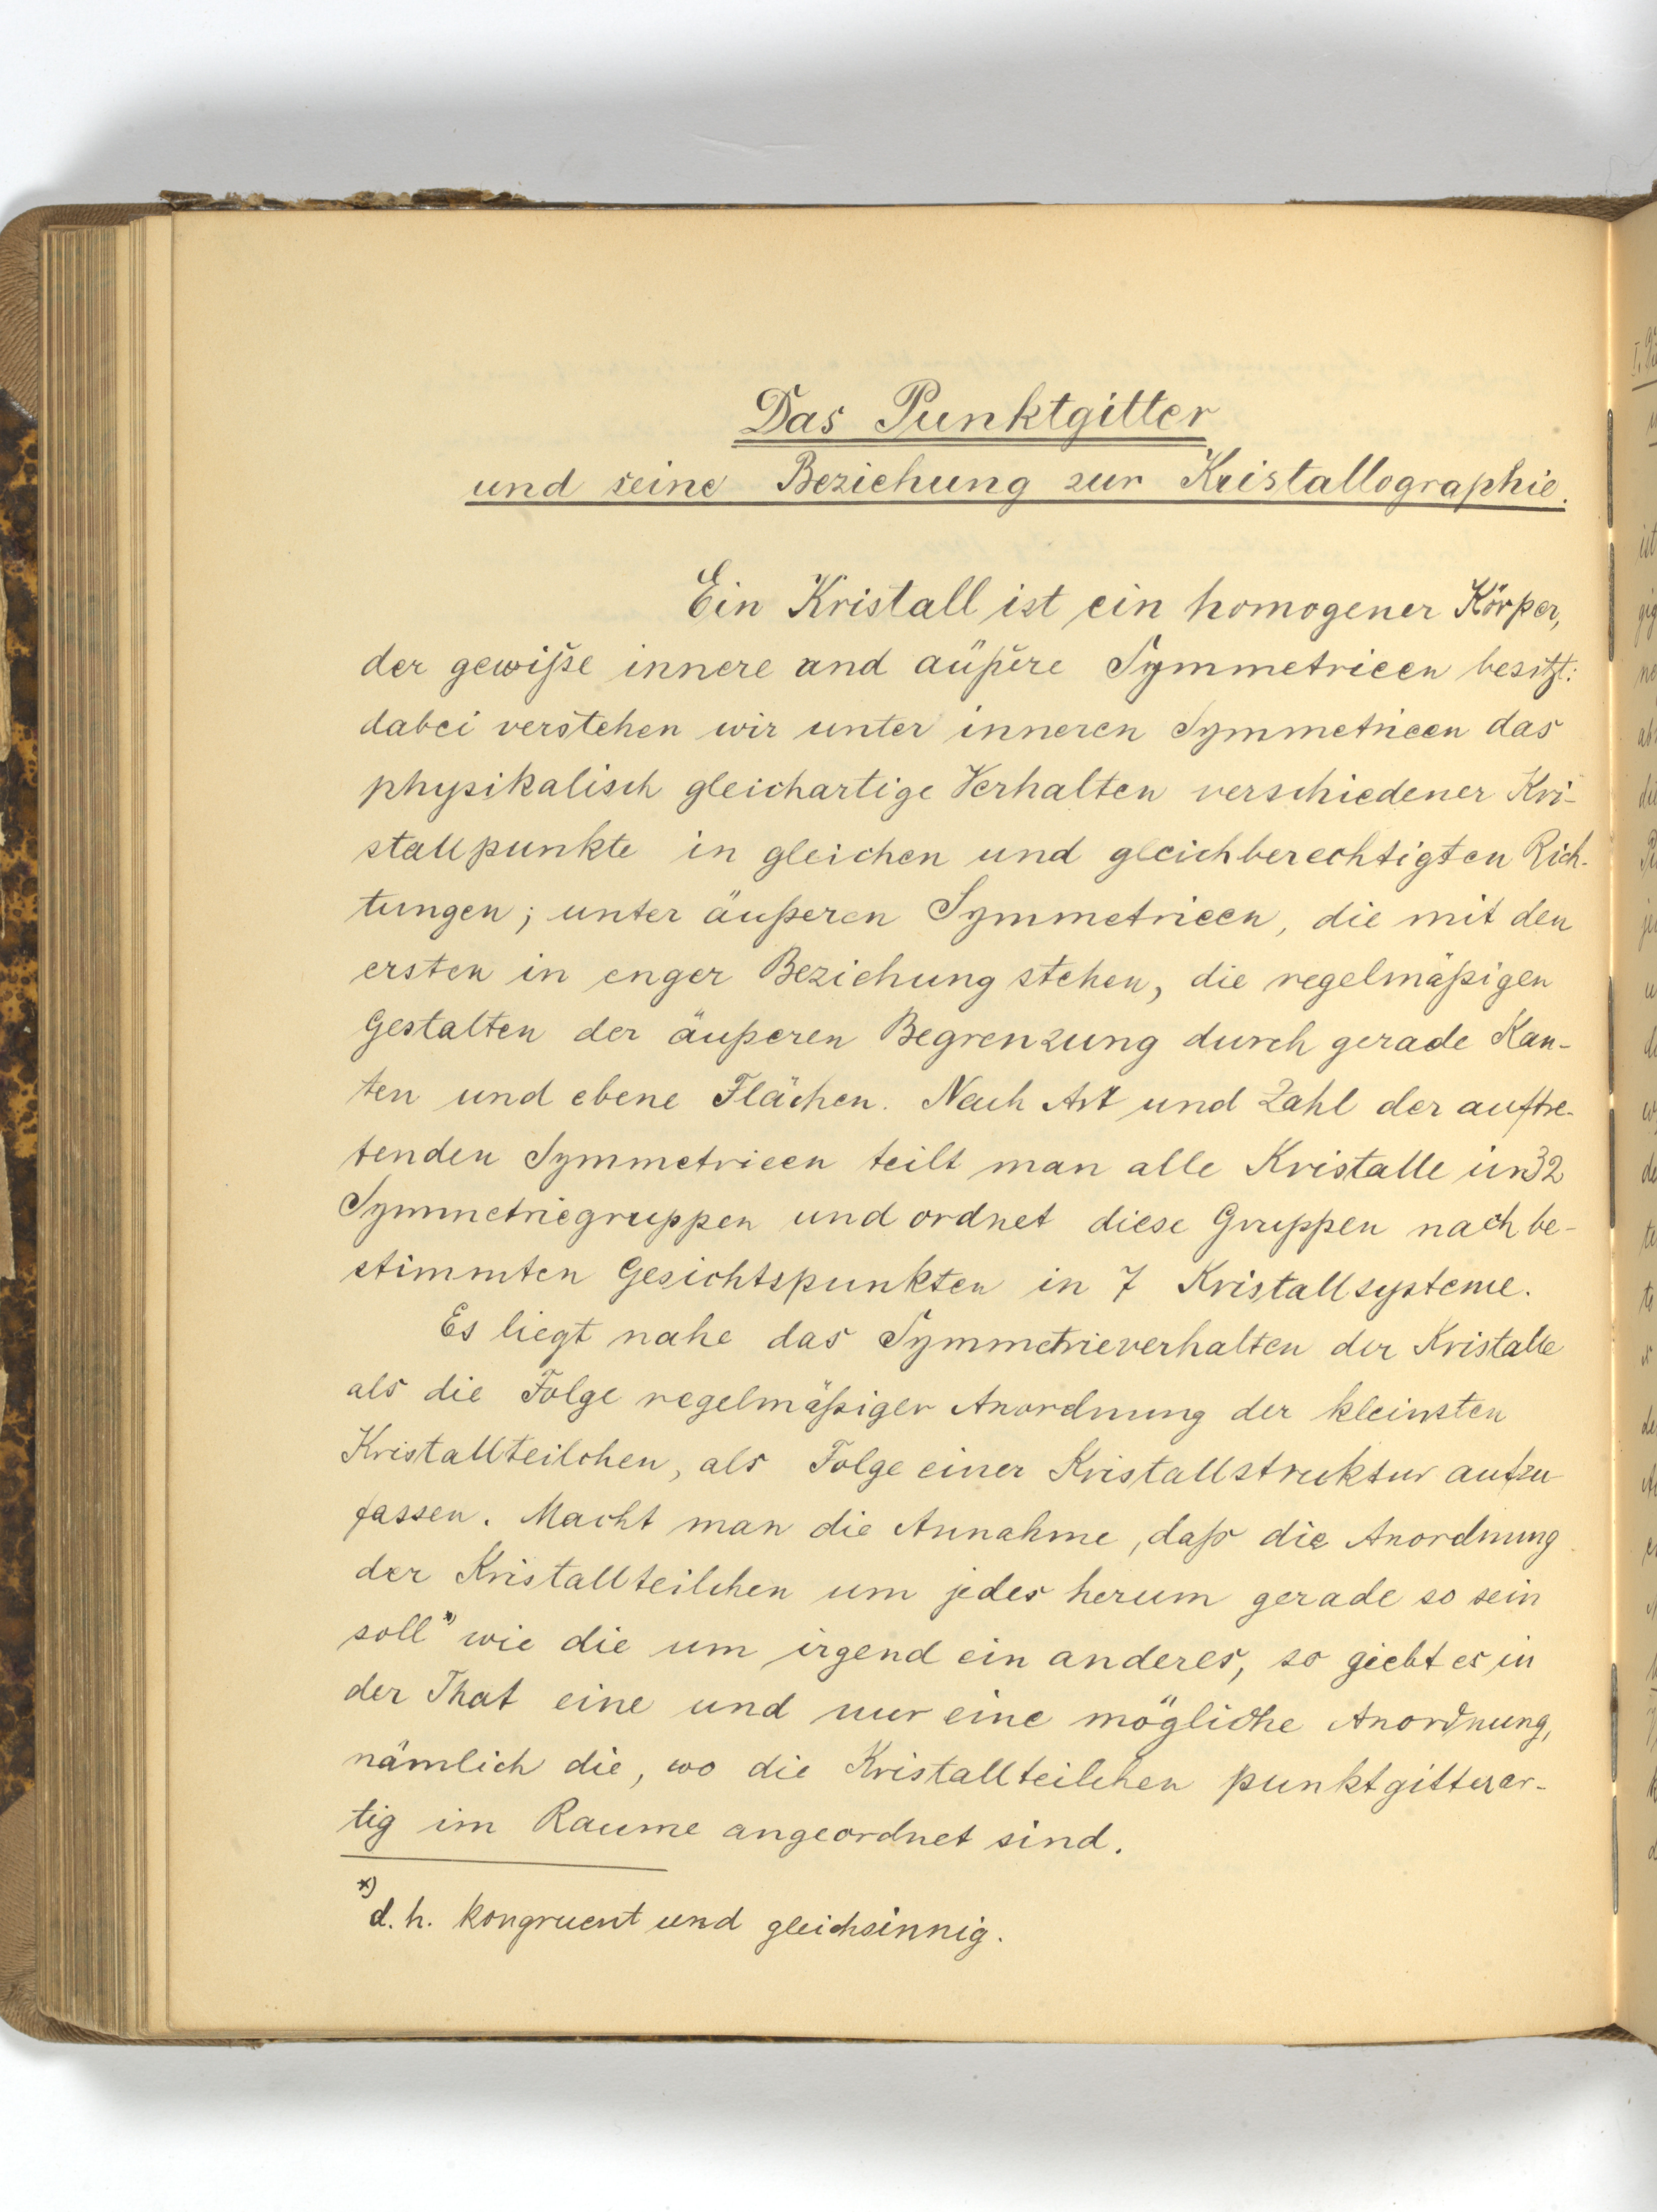 Das Punktgitter
und seine Beziehung zur Kristallographie.
Ein Kristall ist ein homogener Körper,
der gewiße innere und äußere Symmetrieen besitzt:
dabei verstehen wir unter inneren Symmetrieen das
physikalisch gleichartige Verhalten verschiedener Kri-
stallpunkte in gleichen und gleichberechtigten Rich-
tungen; unter äußeren Symmetrieen, die mit den
ersten in enger Beziehung stehen, die regelmäßigen
Gestalten der äußeren Begrenzung durch gerade Kan-
ten und ebene Flächen. Nach Art und Zahl der auftre-
tenden Symmetrieen teilt man alle Kristalle in 32
Symmetriegruppen und ordnet diese Gruppen nach be-
stimmten Gesichtspunkten in 7 Kristallsysteme.
Es liegt nahe das Symmetrieverhalten der Kristalle
als die Folge regelmäßiger Anordnung der kleinsten
Kristallteilchen, als Folge einer Kristallstruktur aufzu
fassen. Macht man die Annahme, daß die Anordnung
der Kristallteilchen um jedes herum gerade so sein
soll*) wie die um irgend ein anderes, so giebt es in
der That eine und nur eine mögliche Anordnung,
nämlich die, wo die Kristallteilchen punktgitterar-
tig im Raume angeordnet sind.
*) d. h. kongruent und gleichsinnig.